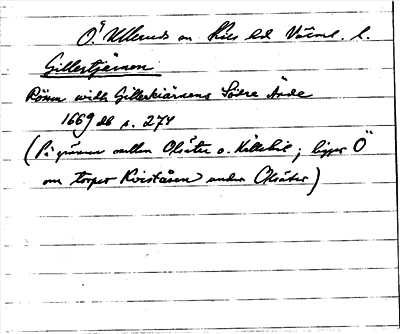 Ö. Ullerud sn Kils hd Värml. l.
Gillertjärnen
Rösen widh Gillerkiärnens Södre Ände
1669 db s. 274
(På gränsen mellan Olsäter o. Källebil; ligger Ö
om torpet Kviståsen under Olsäter)